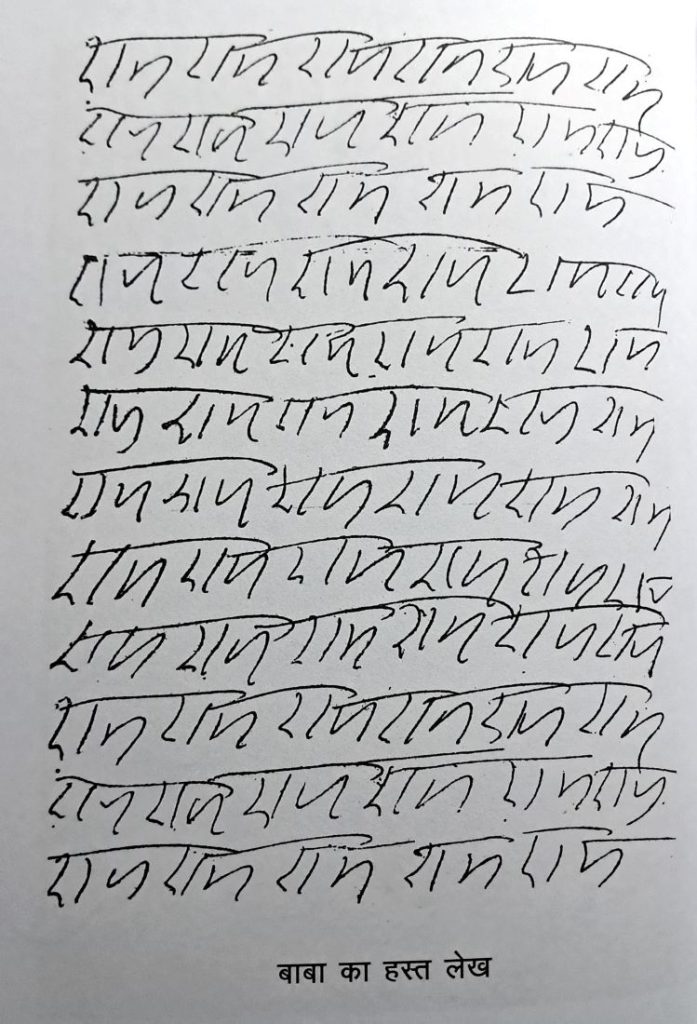 राम राम राम राम राम राम
राम राम राम राम राम राम
राम राम राम राम राम
राम राम राम राम राम राम
राम राम राम राम राम राम
राम राम राम राम राम राम
राम राम राम राम राम राम
राम राम राम राम राम राम
राम राम राम राम राम राम
राम राम राम राम राम राम
राम राम राम राम राम राम
राम राम राम राम राम
बाबा का हस्त लेख